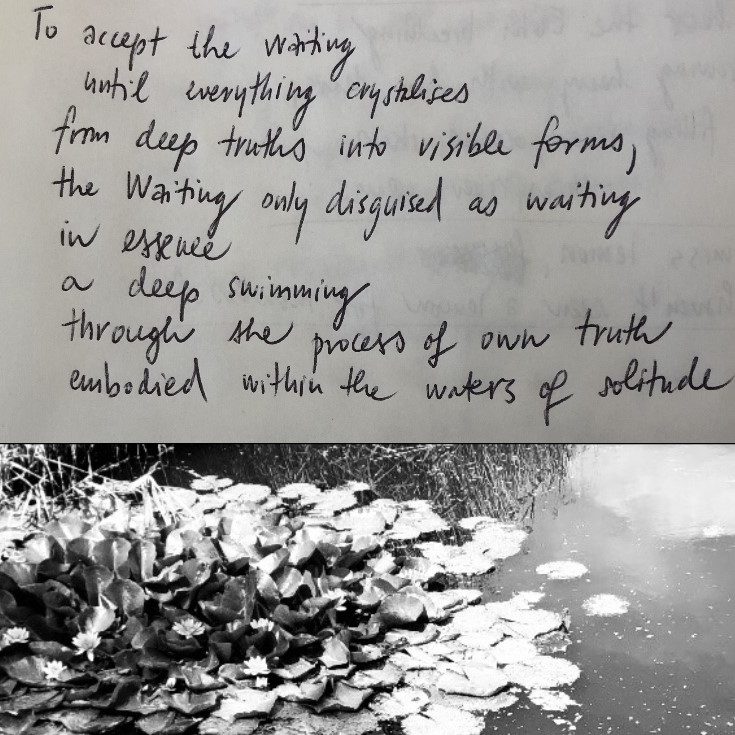 To accept the waiting
until everything crystalises
from deep truths into visible forms,
the Waiting only disguised as waiting
in essence
a deep swimming
through the process of own truth
embodied within the waters of solitude